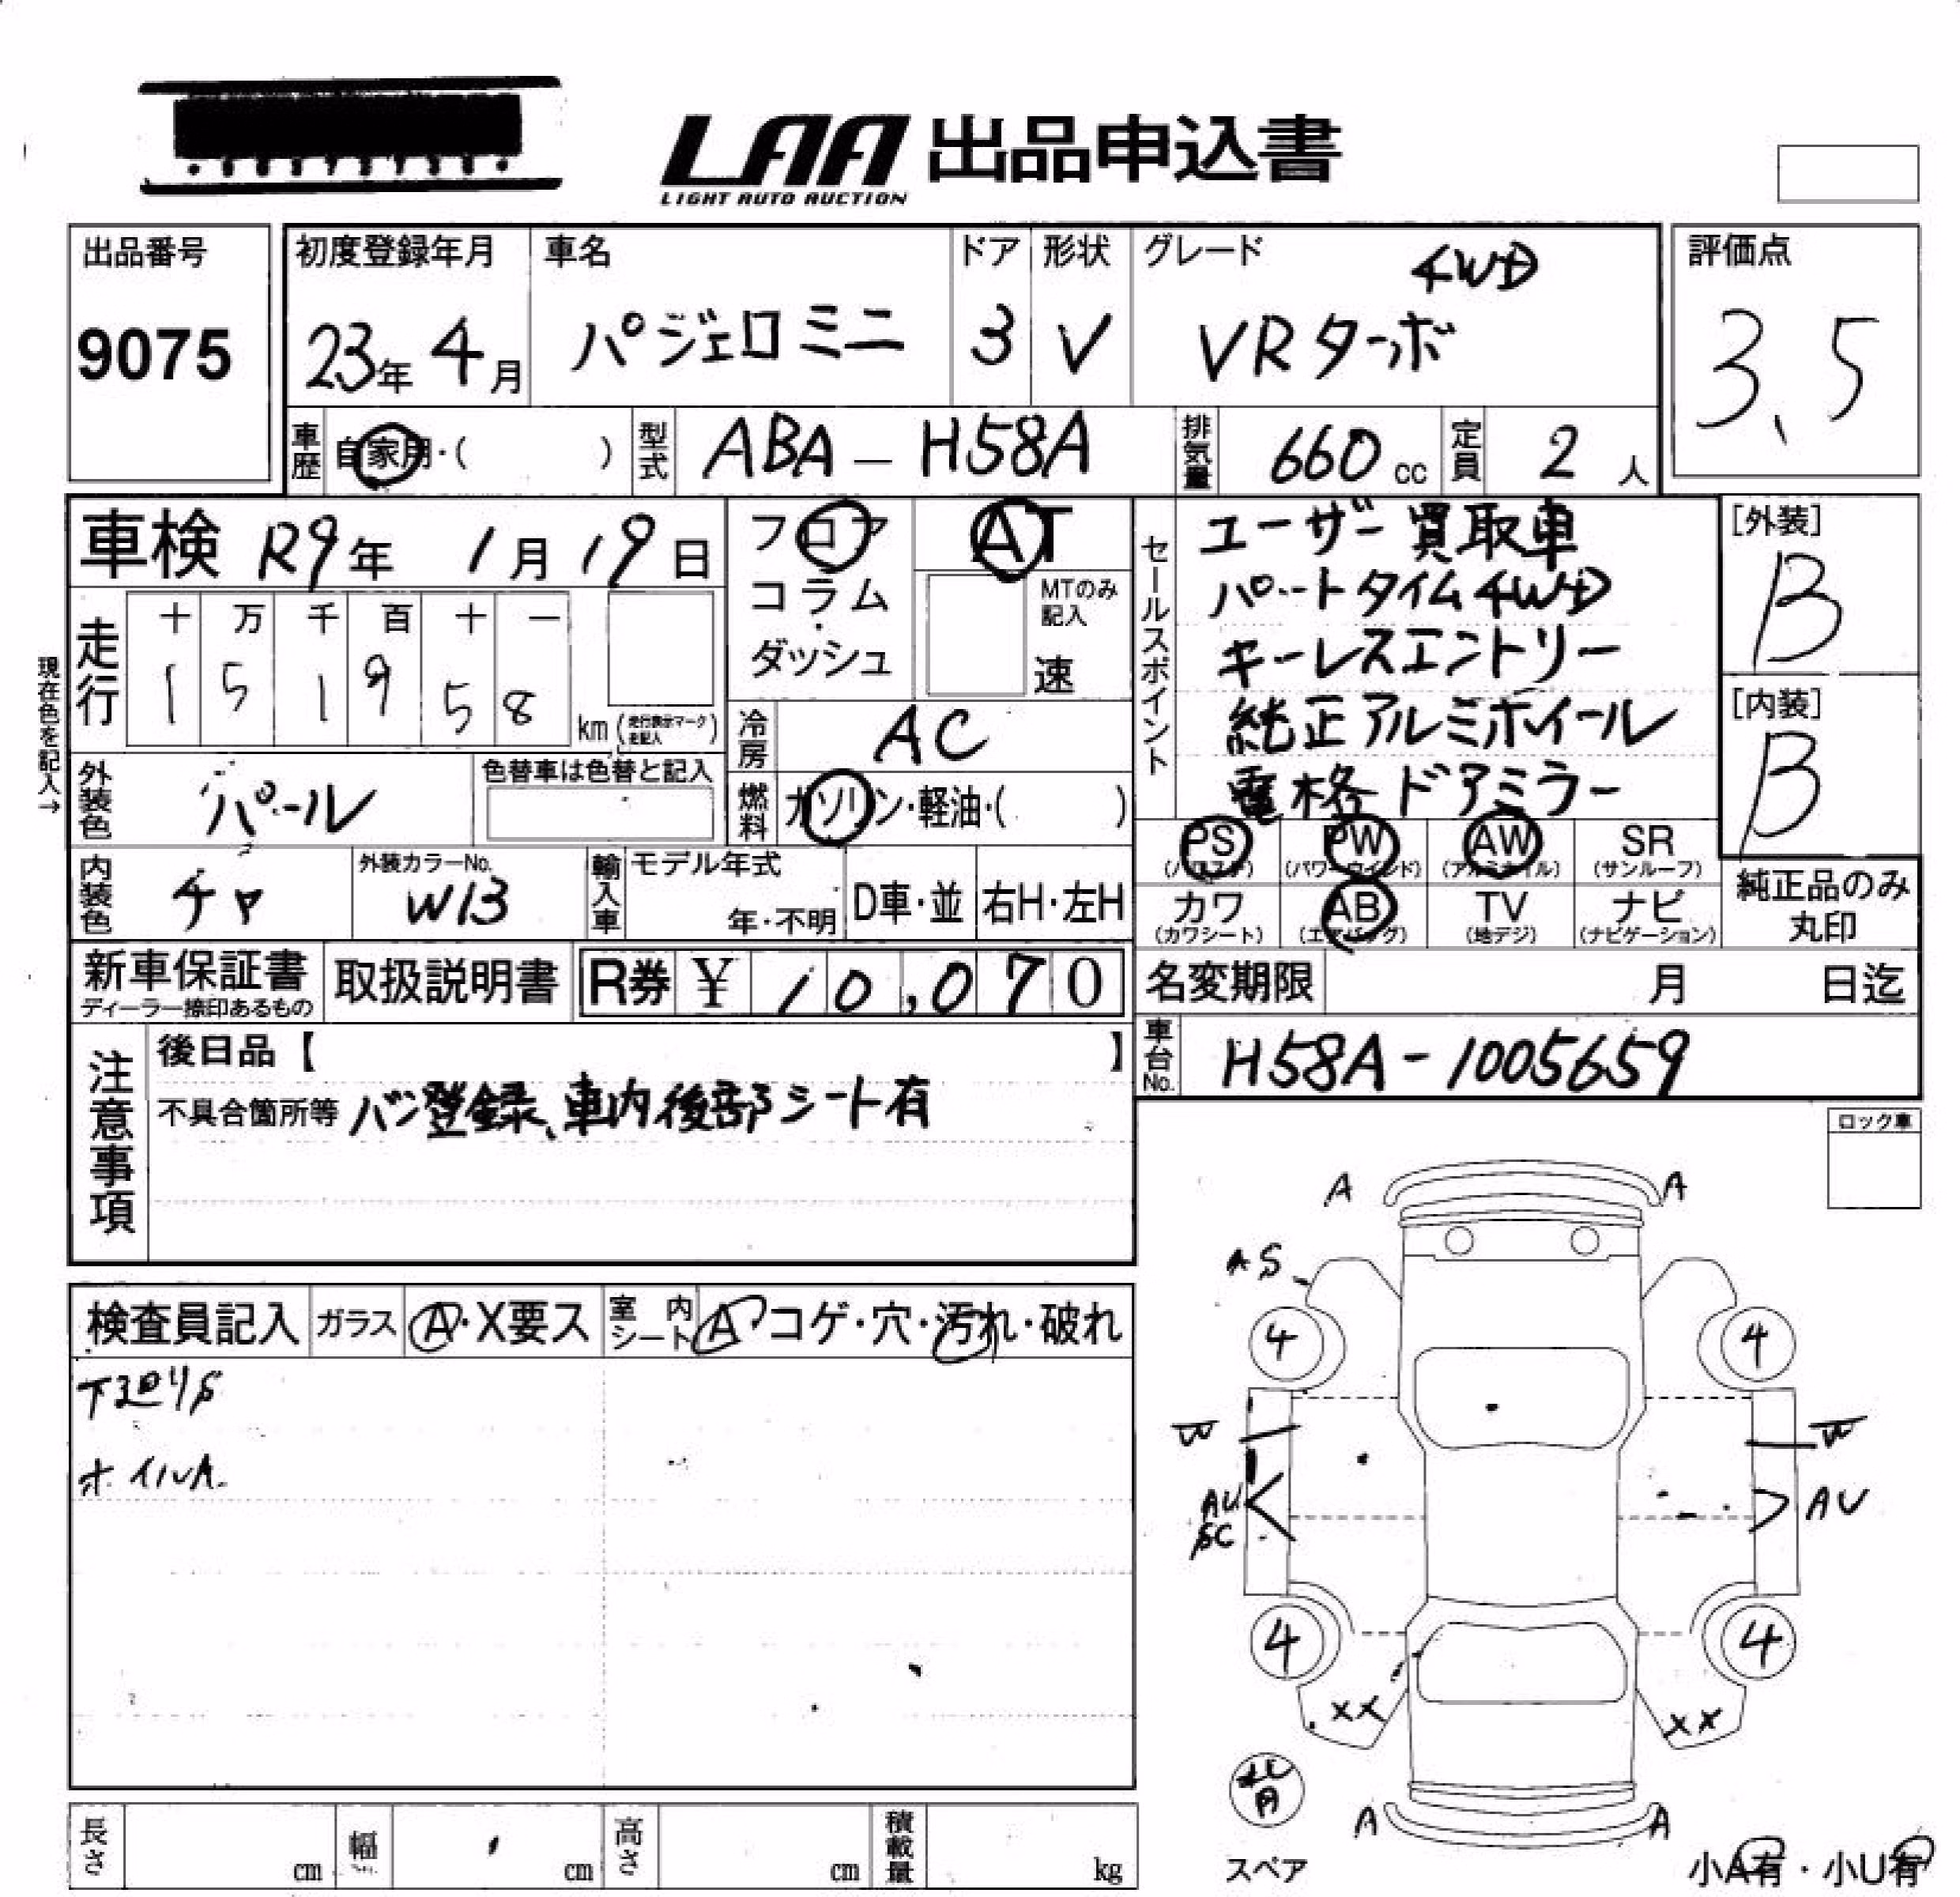 LAA 出品申込書
LIGHT AUTO AUCTION
出品番号
9075
初度登録年月
23年 4月
車名
パジェロミニ
ドア
3
形状
V
グレード
4WD
VRターボ
評価点
3.5
車歴
自家用・( )
型式
ABA-H58A
排気量
660 cc
定員
2 人
車検 R9年 1月19日
フロア
コラム・
ダッシュ
AT
MTのみ
記入
速
走行
十 万 千 百 十 一
1 5 1 9 5 8
km (走行表示マーク
走記入)
現在色を記入→
冷房
AC
燃料
ガソリン・軽油・( )
外装色
パール
色替車は色替と記入
内装色
チャ
外装カラーNo.
W13
輸入車
モデル年式
年・不明
D車・並
右H・左H
セールスポイント
ユーザー買取車
パートタイム4WD
キーレスエントリー
純正アルミホイール
電格ドアミラー
[外装]
B
[内装]
B
PS
(パワステ)
PW
(パワーウインド)
AW
(アルミホイル)
SR
(サンルーフ)
カワ
(カワシート)
AB
(エアバッグ)
TV
(地デジ)
ナビ
(ナビゲーション)
純正品のみ
丸印
新車保証書
ディーラー捺印あるもの
取扱説明書
R券 ¥ 10,070
名変期限 月 日迄
車台No.
H58A-1005659
注意事項
後日品【 】
不具合箇所等 バン登録、車内後部シート有
ロック車
検査員記入
ガラス
A・X要ス
室内
シート
A コゲ・穴・汚れ・破れ
下廻りS
ホイルA
A A
AS
4 4
W W
AU
SC
AU
4 4
XX XX
スペア
A A
小A有・小U有
長さ cm
幅 cm
高さ cm
積載量 kg